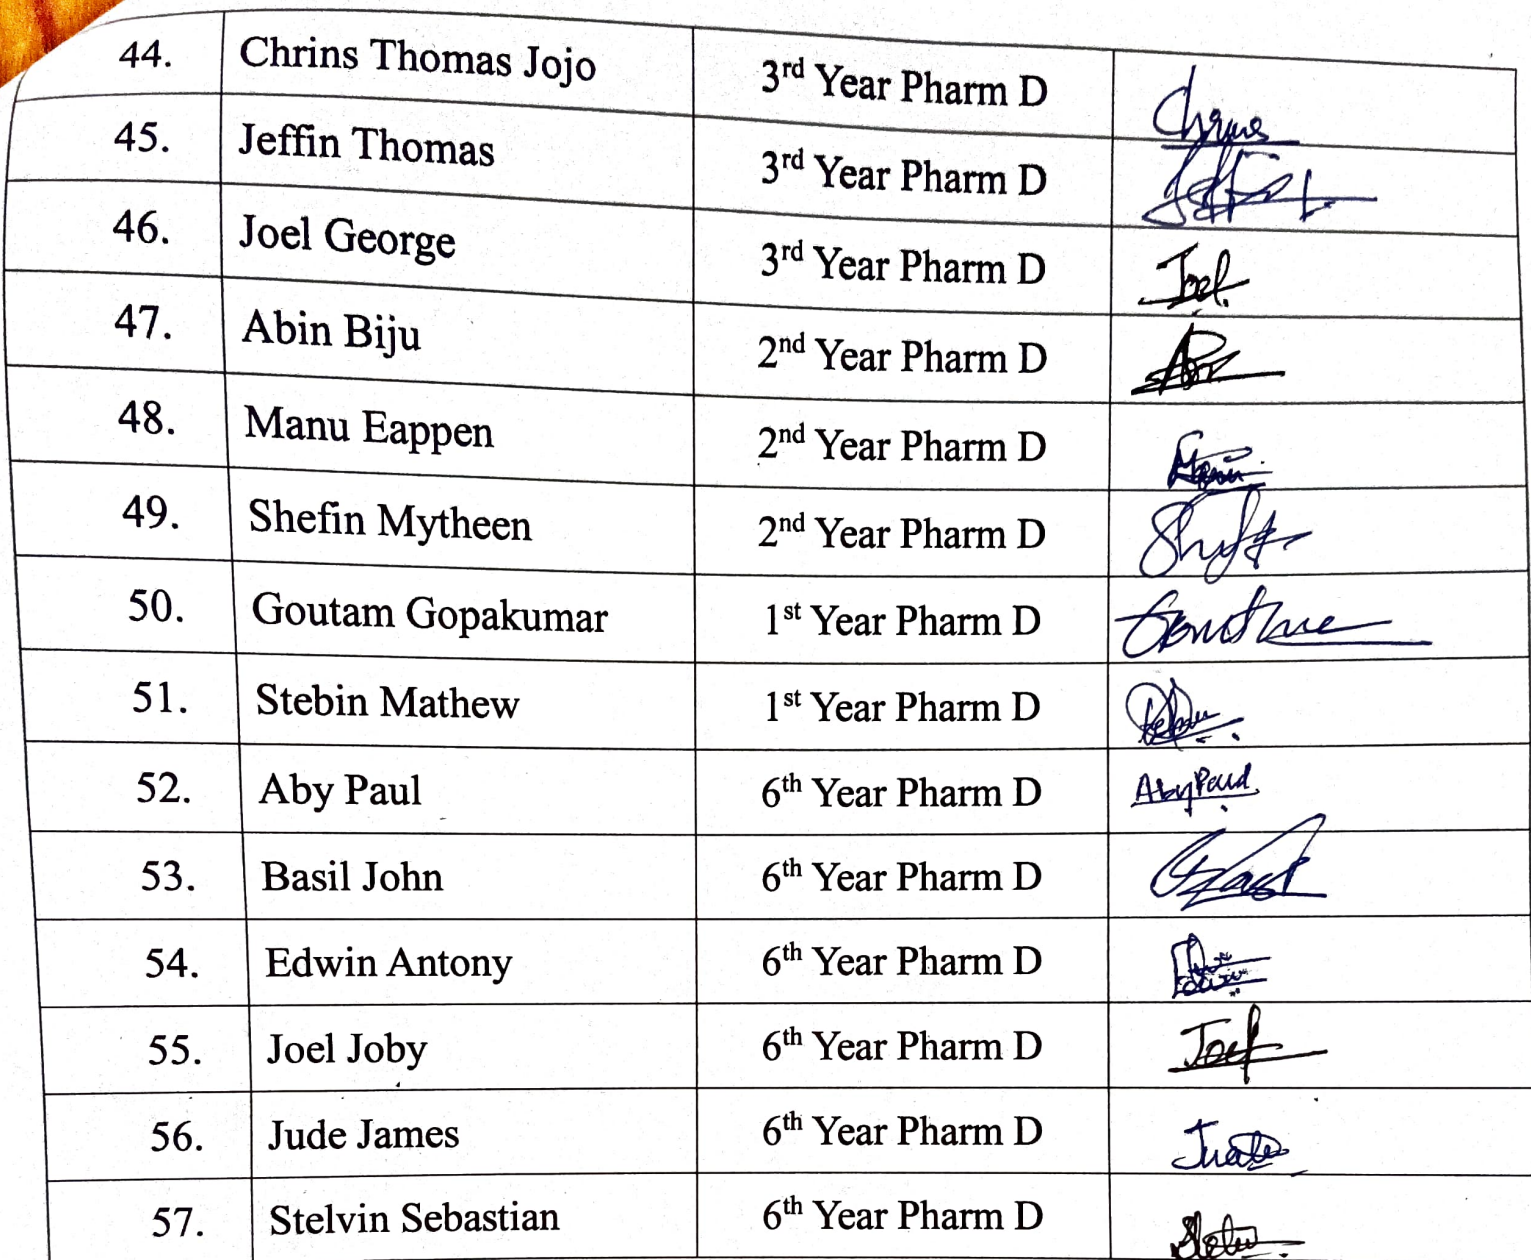 44. Chrins Thomas Jojo 3rd Year Pharm D Chrins
45. Jeffin Thomas 3rd Year Pharm D Jeffin
46. Joel George 3rd Year Pharm D Joel
47. Abin Biju 2nd Year Pharm D
48. Manu Eappen 2nd Year Pharm D
49. Shefin Mytheen 2nd Year Pharm D
50. Goutam Gopakumar 1st Year Pharm D
51. Stebin Mathew 1st Year Pharm D
52. Aby Paul 6th Year Pharm D Aby Paul
53. Basil John 6th Year Pharm D
54. Edwin Antony 6th Year Pharm D
55. Joel Joby 6th Year Pharm D Joel
56. Jude James 6th Year Pharm D
57. Stelvin Sebastian 6th Year Pharm D